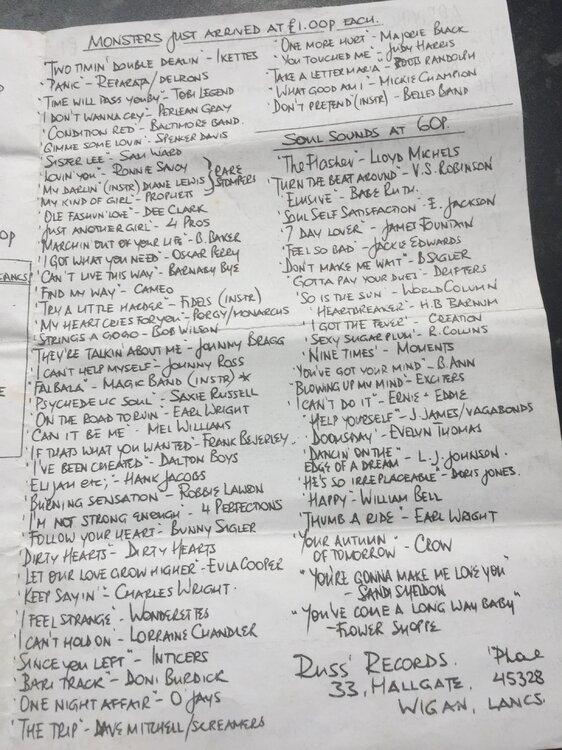 MONSTERS JUST ARRIVED AT £1.00P EACH.
'TWO TIMIN' DOUBLE DEALIN' - IKETTES
'PANIC' - REPARATA/DELRONS
'TIME WILL PASS YOU BY' - TOBI LEGEND
'I DON'T WANNA CRY' - PERLEAN GRAY
'CONDITION RED' - BALTIMORE BAND.
'GIMME SOME LOVIN' - SPENCER DAVIS
'SISTER LEE' - SAM WARD
'LOVIN' YOU' - RONNIE SAVOY
'MY DARLIN' (INSTR) DIANE LEWIS
'MY KIND OF GIRL' - PROPHETS
RARE STOMPERS
'OLE FASHUN' LOVE' - DEE CLARK
'JUST ANOTHER GIRL' - 4 PROS
'MARCHIN OUT OF YOUR LIFE' - B. BAKER
'I GOT WHAT YOU NEED' - OSCAR PERRY
'CAN'T LIVE THIS WAY' - BARNABY BYE
'FIND MY WAY' - CAMEO
'TRY A LITTLE HARDER' - FIDELS (INSTR)
'MY HEART CRIES FOR YOU' - PORGY/MONARCHS
'STRINGS A GOGO' - BOB WILSON
'THEY'RE TALKIN' ABOUT ME' - JOHNNY BRAGG
'I CAN'T HELP MYSELF' - JOHNNY ROSS
'FALBALA' - MAGIC BAND (INSTR) *
'PSYCHEDELIC SOUL' - SAXIE RUSSELL
'ON THE ROAD TO RUIN' - EARL WRIGHT
'CAN IT BE ME' - MEL WILLIAMS
'IF THATS WHAT YOU WANTED' - FRANK BEVERLEY.
'I'VE BEEN CHEATED' - DALTON BOYS
'ELIJAH ETC;' - HANK JACOBS
'BURNING SENSATION' - ROBBIE LAWSON
'I'M NOT STRONG ENOUGH' - 4 PERFECTIONS
'FOLLOW YOUR HEART' - BUNNY SIGLER
'DIRTY HEARTS' - DIRTY HEARTS
'LET OUR LOVE GROW HIGHER' - EULA COOPER
'KEEP SAYIN'' - CHARLES WRIGHT.
'I FEEL STRANGE' - WONDERETTES
'I CAN'T HOLD ON' - LORRAINE CHANDLER
'SINCE YOU LEFT' - INTICERS
'BARI TRACK' - DONI BURDICK
'ONE NIGHT AFFAIR' - O'JAYS
'THE TRIP' - DAVE MITCHELL/SCREAMERS
'ONE MORE HURT' - MARJORIE BLACK
'YOU TOUCHED ME' - JUDY HARRIS
'TAKE A LETTER MARIA' - BOOTS RANDOLPH
'WHAT GOOD AM I' - MICKIE CHAMPION
'DON'T PRETEND' (INSTR) - BELLES BAND
SOUL SOUNDS AT 60P.
'THE FLASHER' - LLOYD MICHELS
'TURN THE BEAT AROUND' - V.S. ROBINSON
'ELUSIVE' - BABE RUTH.
'SOUL SELF SATISFACTION' - E. JACKSON
'7 DAY LOVER' - JAMES FOUNTAIN
'FEEL SO BAD' - JACKIE EDWARDS
'DON'T MAKE ME WAIT' - B SIGLER
'GOTTA PAY YOUR DUES' - DRIFTERS
'SO IS THE SUN' - WORLD COLUMN
'HEARTBREAKER' - H.B. BARNUM
'I GOT THE FEVER' - CREATION
'SEXY SUGAR PLUM' - R. COLLINS
'NINE TIMES' - MOMENTS
'YOU'VE GOT YOUR MIND' - B. ANN
'BLOWING UP MY MIND' - EXCITERS
'I CAN'T DO IT' - ERNIE + EDDIE
'HELP YOURSELF' - J. JAMES/VAGABONDS
'DOOMSDAY' - EVELYN THOMAS
'DANCIN' ON THE
EDGE OF A DREAM' - L.J. JOHNSON.
'HE'S SO IRREPLACEABLE' - DORIS JONES.
'HAPPY' - WILLIAM BELL
'THUMB A RIDE' - EARL WRIGHT
'YOUR AUTUMN
OF TOMORROW' - CROW
"YOU'RE GONNA MAKE ME LOVE YOU"
- SANDI SHELDON
"YOU'VE COME A LONG WAY BABY"
- FLOWER SHOPPE
RUSS' RECORDS. 'Phone
33, HALLGATE, 45328
WIGAN, LANCS.